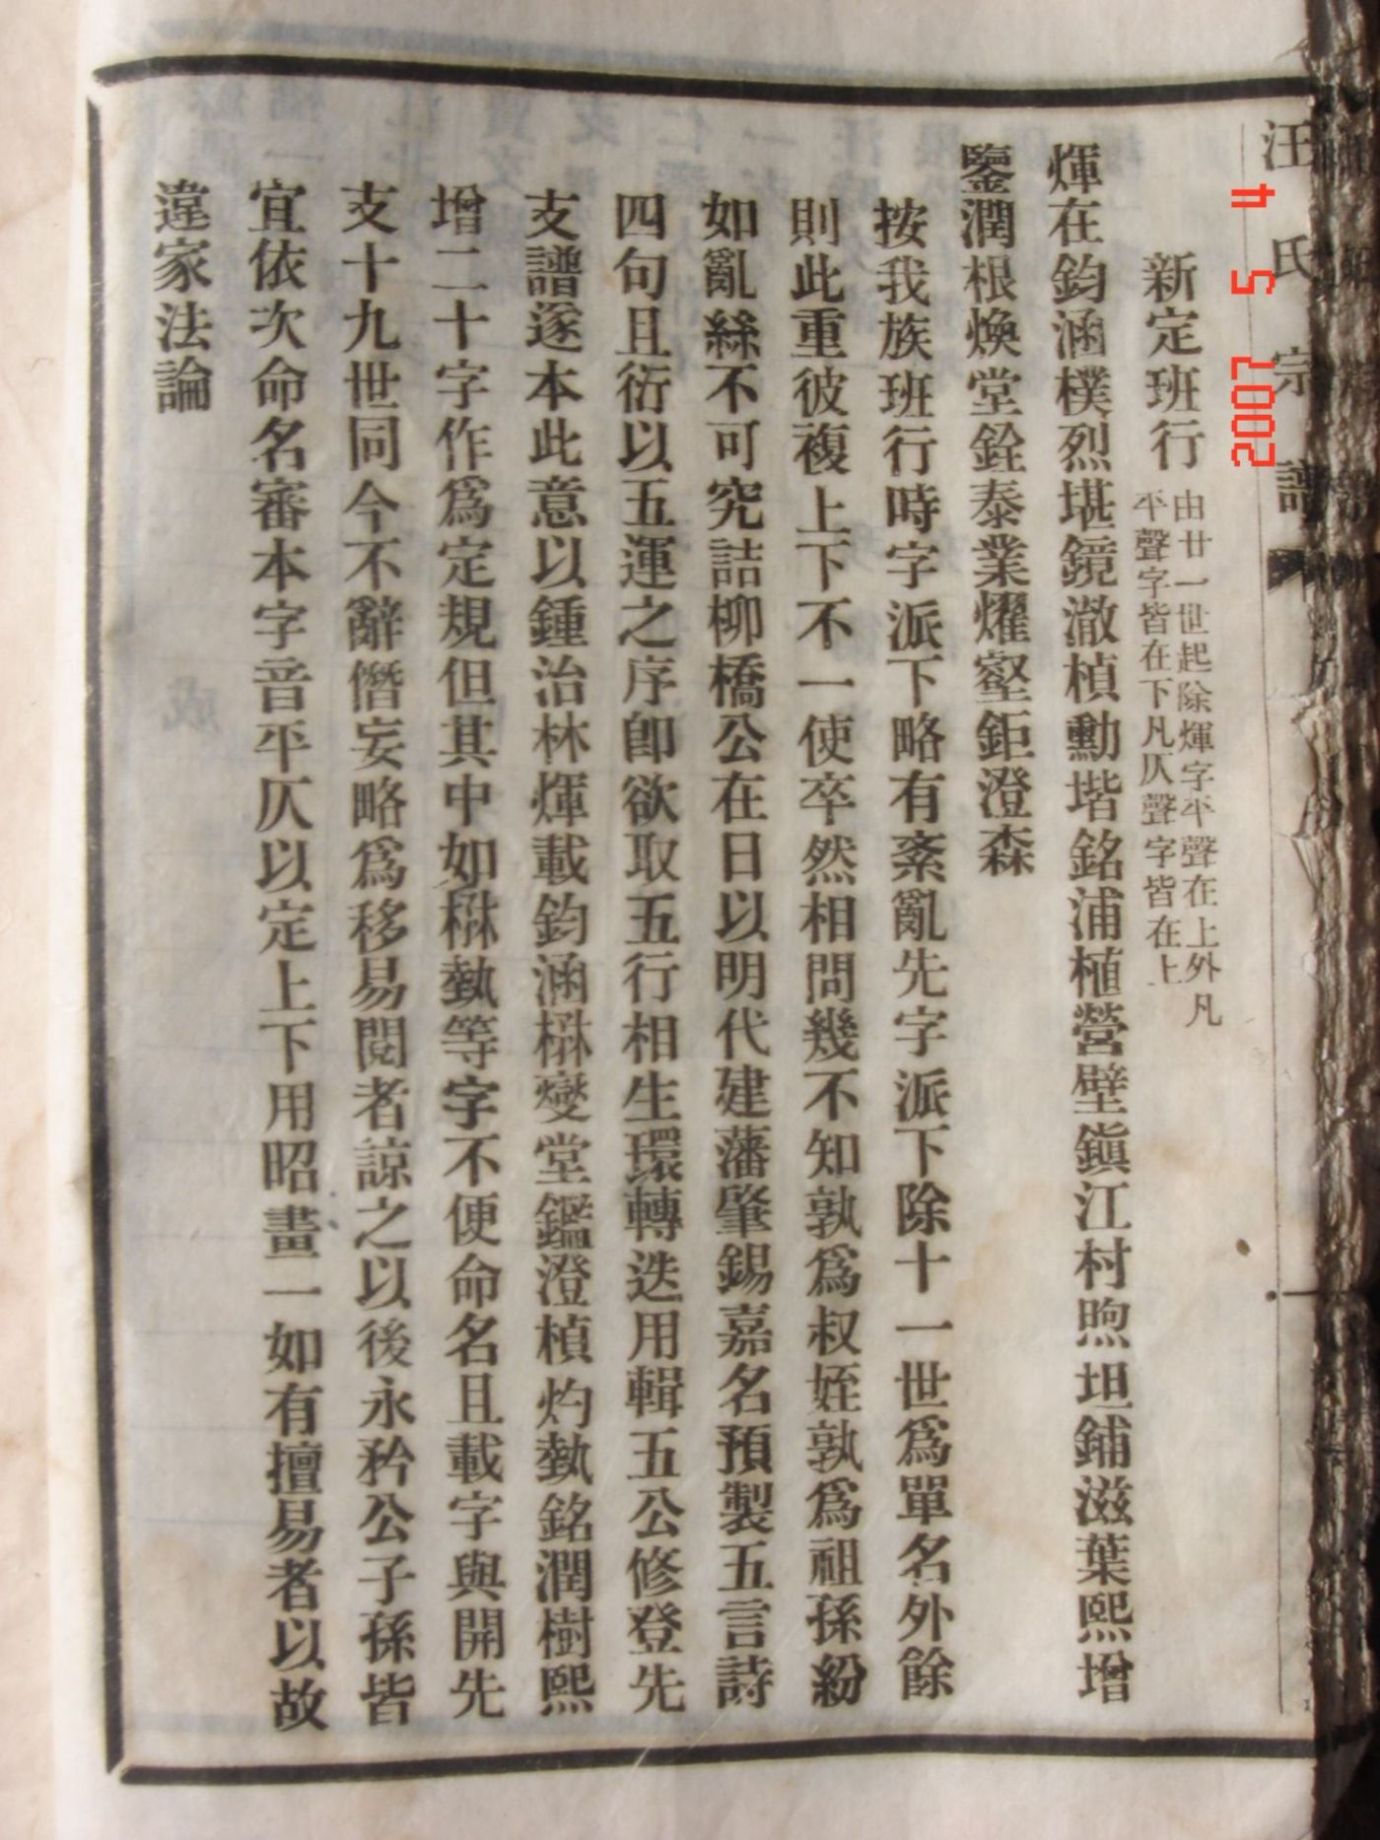 汪氏宗譜
新定班行
由廿一世起除煇字平聲在上外凡
平聲字皆在下凡仄聲字皆在上
煇在鈞涵樸烈堪鏡澈楨勳堦銘浦植營壁鎮江村煦坦鋪滋葉熙增
鑒潤根煥堂銓泰業燿壑鉅澄森
按我族班行時字派下略有紊亂先字派下除十一世爲單名外餘
則此重彼複上下不一使卒然相問幾不知孰爲叔姪孰爲祖孫紛
如亂絲不可究詰柳橋公在日以明代建藩肇錫嘉名預製五言詩
四句且衍以五運之序即欲取五行相生環轉迭用輯五公修登先
支譜遂本此意以鍾治林煇載鈞涵楙燮堂鑑澄楨灼埶銘潤樹熙
增二十字作爲定規但其中如楙埶等字不便命名且載字與開先
支十九世同今不辭僭妄略爲移易閱者諒之以後永矜公子孫皆
宜依次命名審本字音平仄以定上下用昭畫一如有擅易者以故
違家法論
2007 5 4